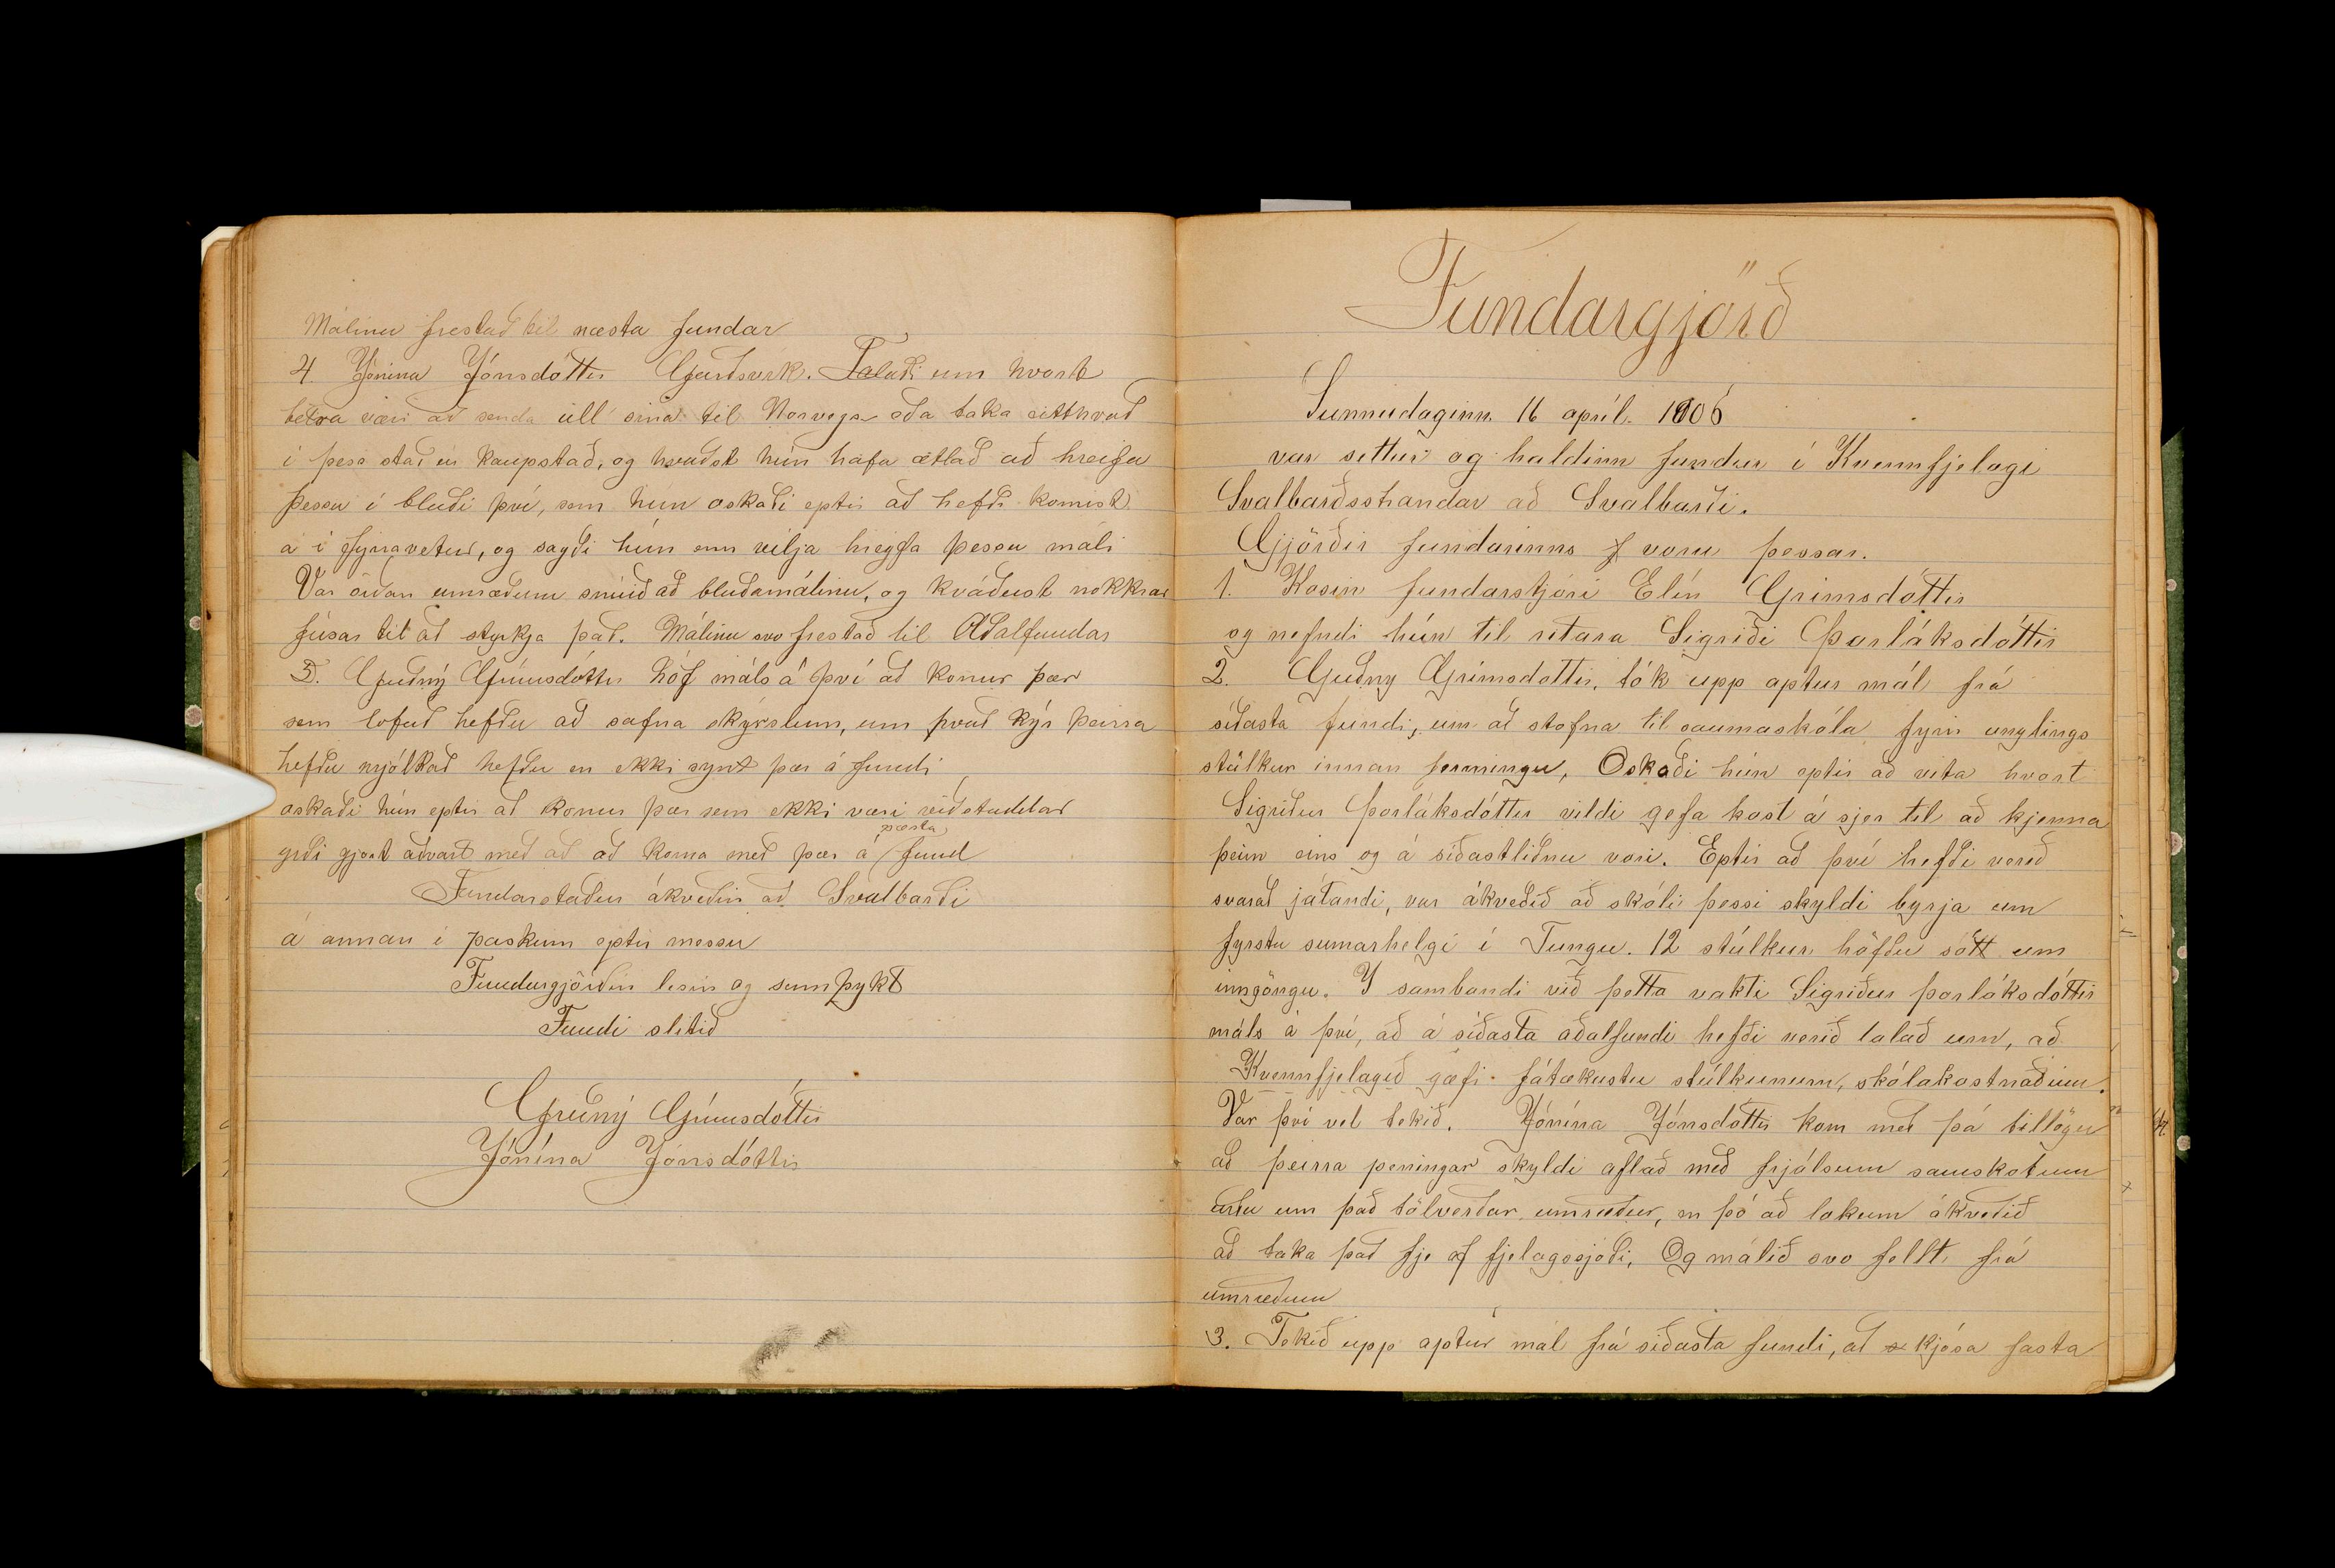 Málinu frestað til næsta fundar
4. Jónína Jónsdóttir Garðsvík. Talaði um hvort
betra væri að senda ull sína til Norvegs eða taka eitthvað
í þess stað úr kaupstað, og kvaðst hún hafa ætlað að hreifa
þessu í blaði því, sem hún oskaði eptir að hefði komist
á í fyrravetur, og sagði hún enn vilja hreyfa þessu máli
Var síðan umræðum snúið að blaðamálinu, og kváðust nokkrar
fúsar til að styrkja það. Málinu svo frestað til Aðalfundar
5. Guðný Grímsdóttir hóf máls á því að konur þær
sem lofað hefðu að safna skýrslum, um hvað kýr þeirra
hefðu mjólkað hefðu en ekki synt þær á fundi
oskaði hún eptir að konur þær sem ekki væri viðstaddar
yrði gjört aðvart með að að koma með þær á næsta fund
Fundarstaður ákveðin að Svalbarði
á annan í paskum eptir messu
Fundargjörðin lesin og samþykt
Fundi slitið
Guðný Grímsdóttir
Jónína Jónsdóttir
Fundargjörð
Sunnudaginn 16 apríl. 1906
var settur og haldinn fundur í Kvennfjelagi
Svalbarðsstrandar að Svalbarði.
Gjörðir fundarinns voru þessar.
1. Kosin fundarstjóri Elín Grímsdóttir
og nefndi hún til ritara Sigríði Þorláksdóttir
2. Guðny Grímsdottir, tók upp aptur mál frá
síðasta fundi, um að stofna til saumaskóla fyrir unglings
stúlkur innan fermingu, Oskaði hún eptir að vita hvort
Sigríður Þorláksdóttir vildi gefa kost á sjer til að kjenna
þeim eins og á síðastliðnu vori. Eptir að því hefði verið
svarað játandi, var ákveðið að skóli þessi skyldi byrja um
fyrstu sumarhelgi í Tungu. 12 stúlkur höfðu sótt um
inngöngu. Y sambandi við þetta vakti Sigríður Þorláksdóttir
máls á því, að á síðasta aðalfundi hefði verið talað um, að
Kvennfjelagið gæfi fátækustu stúlkunum, skólakostnaðinn.
Var því vel tekið. Jónína Jónsdóttir kom með þá tillögu
að þeirra peningar skyldi aflað með frjálsum samskotum
urðu um það tölverðar umræður, en þó að lokum ákveðið
að taka það fje af fjelagssjóði, Og málið svo fellt frá
umræðum
3. Tekið upp aptur mál frá síðasta fundi, að kjósa fasta